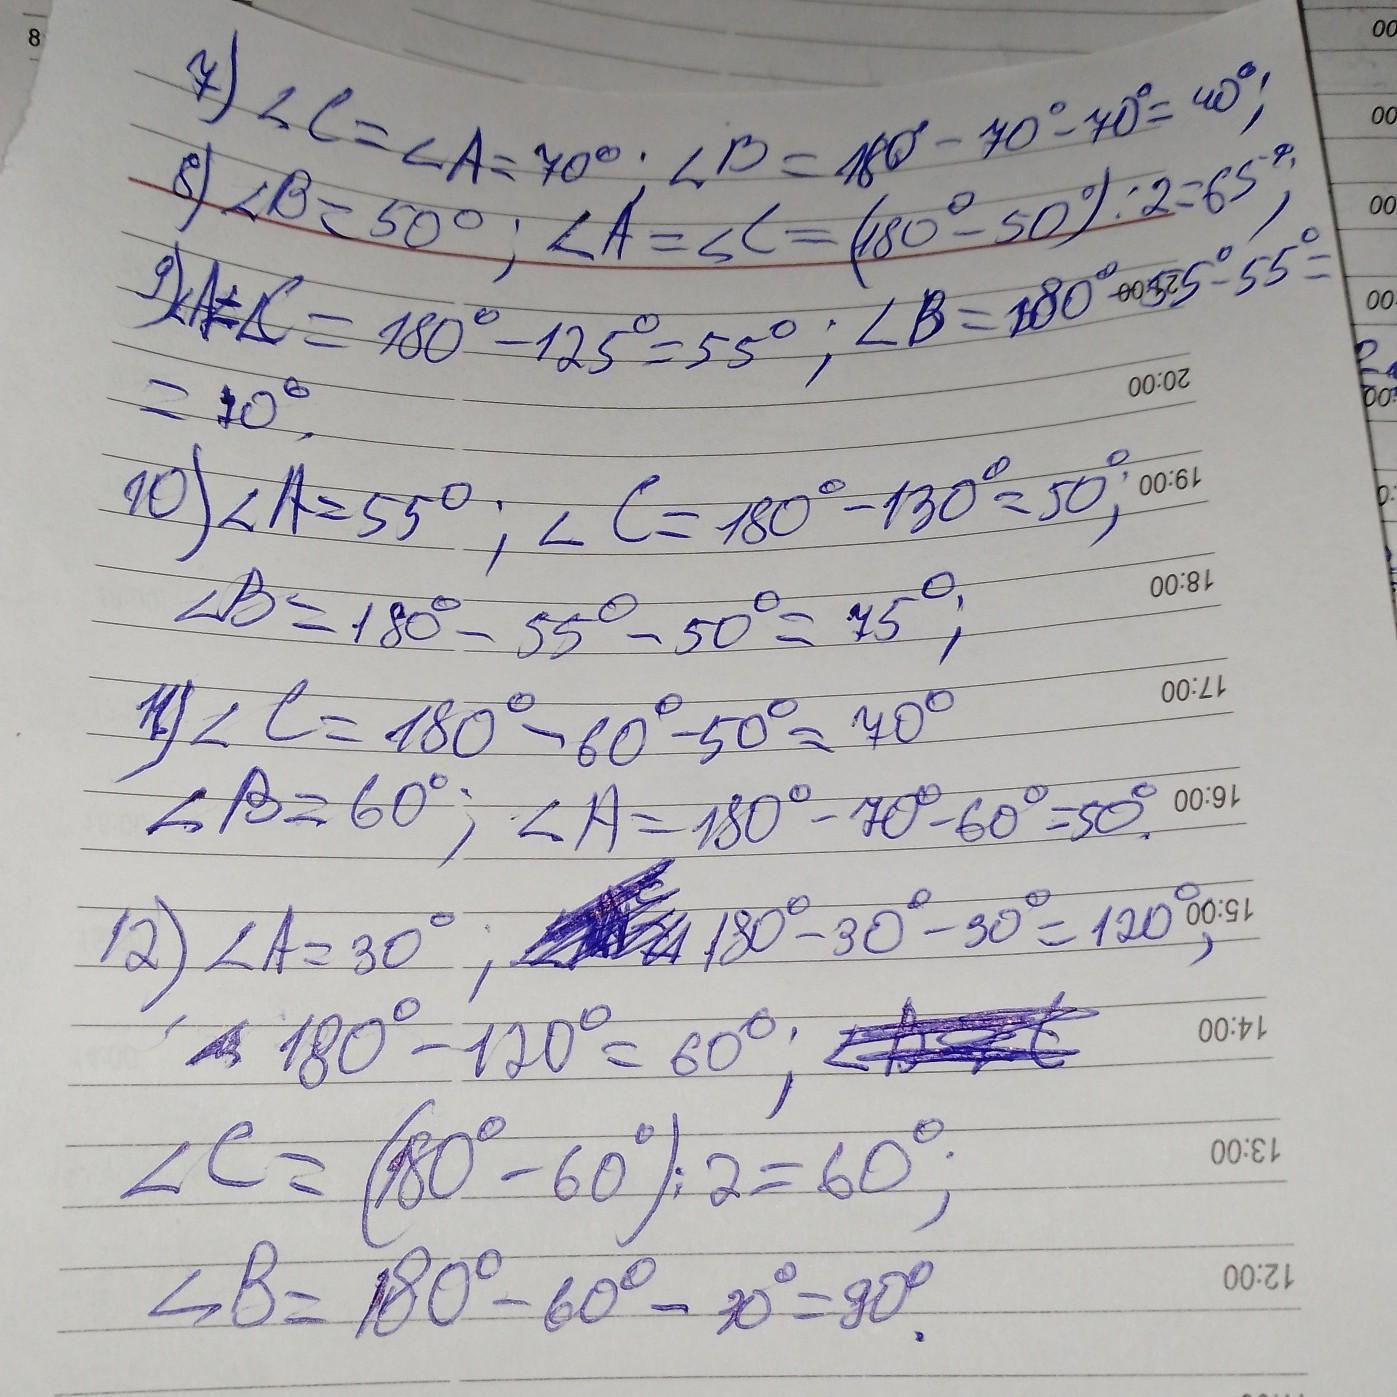 8
7) ∠C = ∠A = 70°; ∠B = 180° - 70° - 70° = 40°;
8) ∠B = 50°; ∠A = ∠C = (180° - 50°) : 2 = 65°;
9) ∠A = ∠C = 180° - 125° = 55°; ∠B = 180° - 55° - 55° =
= 70°.
10) ∠A = 55°; ∠C = 180° - 130° = 50°;
∠B = 180° - 55° - 50° = 75°;
11) ∠C = 180° - 60° - 50° = 70°
∠B = 60°; ∠A = 180° - 70° - 60° = 50°.
12) ∠A = 30°; 180° - 30° - 30° = 120°;
180° - 120° = 60°;
∠C = (180° - 60°) : 2 = 60°;
∠B = 180° - 60° - 30° = 90°.
20:00
19:00
18:00
17:00
16:00
15:00
14:00
13:00
12:00